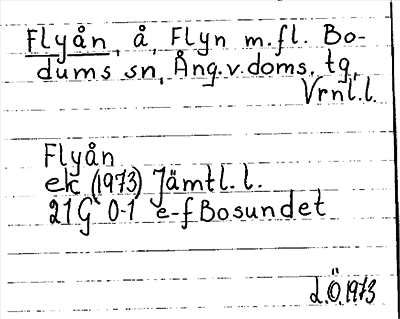 Flyån, å, Flyn m.fl. Bo-
dums sn, Ång.v.doms. tg,
Vrnl.l.
Flyån
ek (1973) Jämtl.l.
21G 0-1 e-f Bosundet
d.Ö.1973